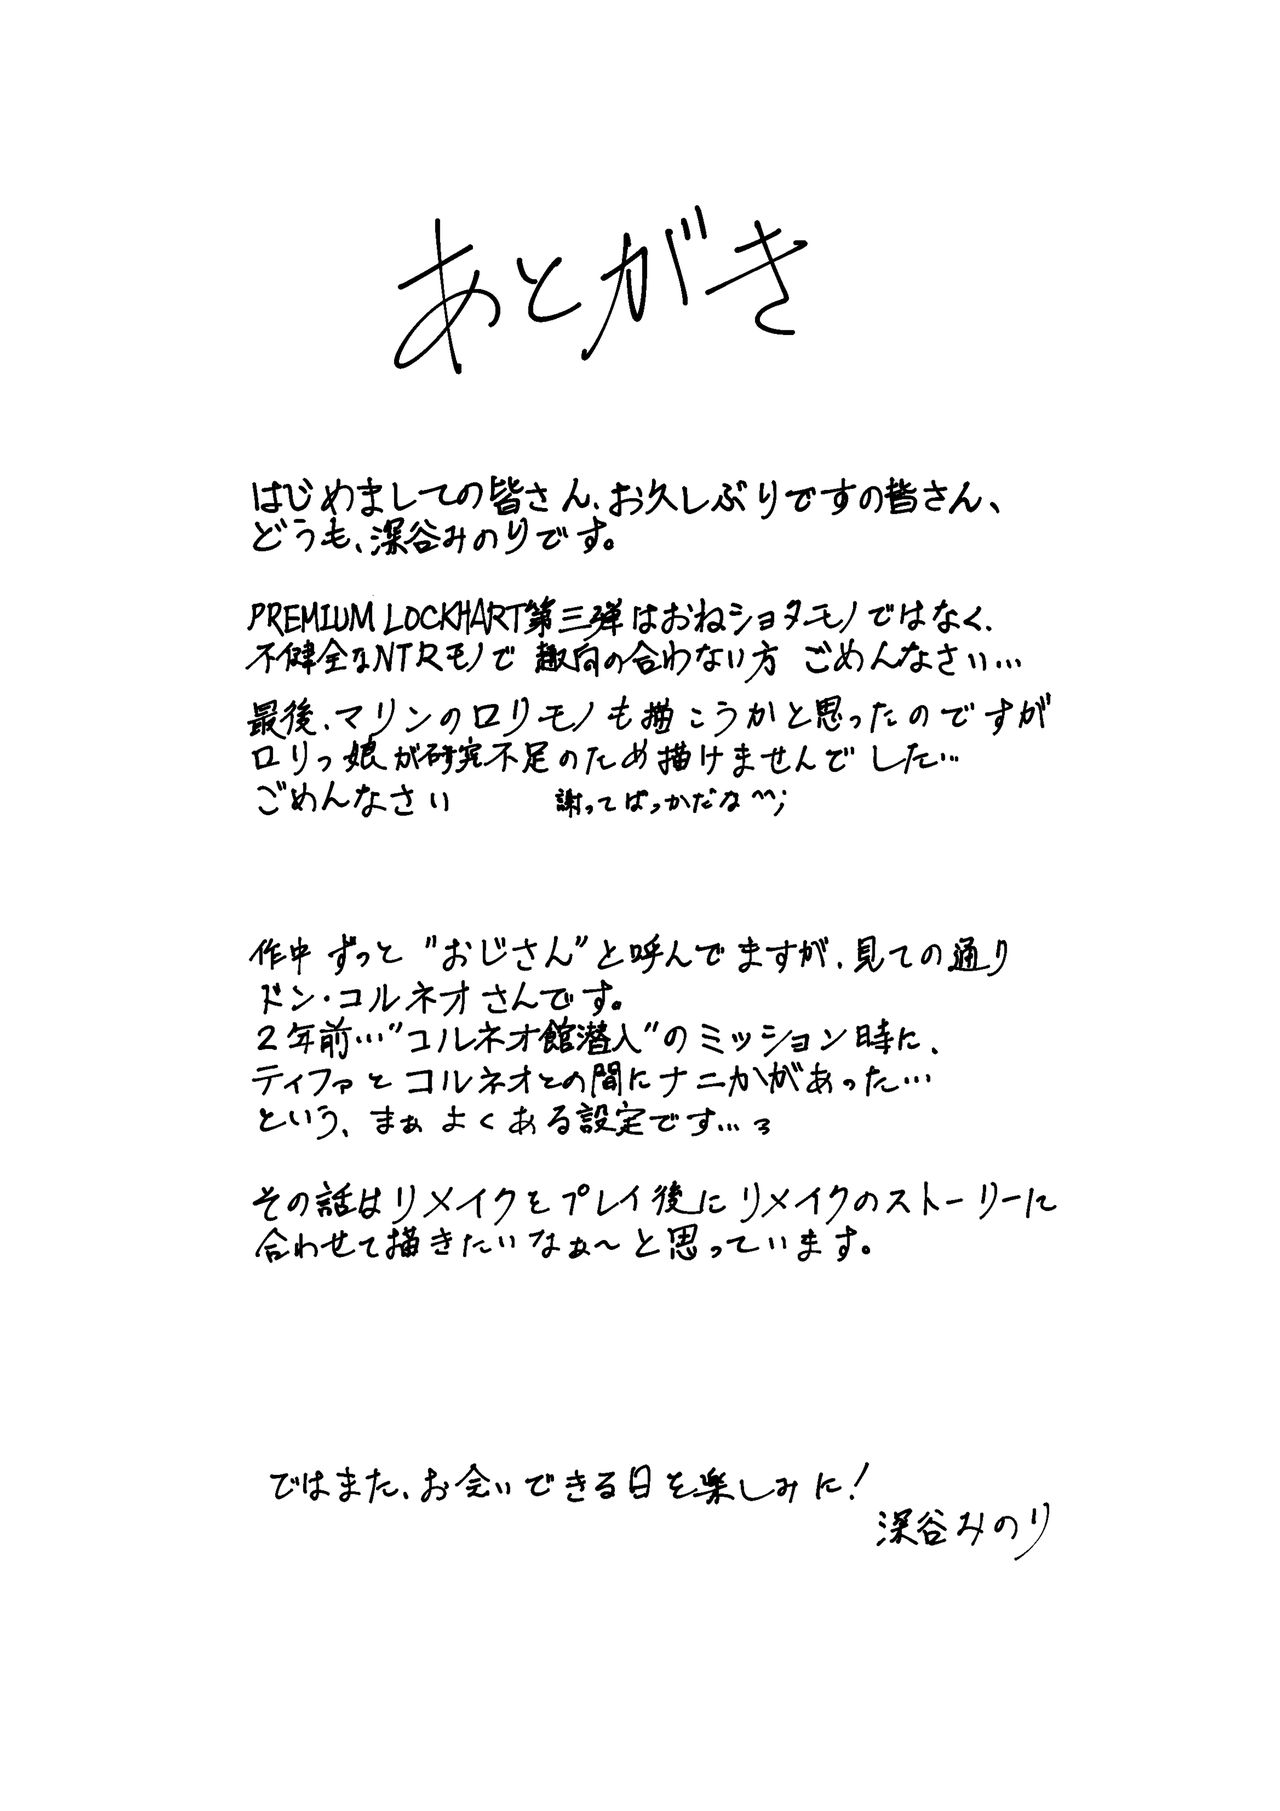 あとがき
はじめましての皆さん、お久しぶりですの皆さん、
どうも、深谷みのりです。
PREMIUM LOCKHART第三弾はおねショタモノではなく、
不健全なNTRモノで 趣向の合わない方 ごめんなさい…
最後、マリンのロリモノも描こうかと思ったのですが
ロリっ娘が研究不足のため描けませんでした…
ごめんなさい 謝ってばっかだな^^;
作中 ずっと "おじさん"と呼んでますが、見ての通り
ドン・コルネオさんです。
2年前…"コルネオ館潜入"のミッション時に、
ティファとコルネオとの間にナニかがあった…
という、まぁ よくある設定です…
その話はリメイクをプレイ後にリメイクのストーリーに
合わせて描きたいなぁ～と思っています。
ではまた、お会いできる日を楽しみに!
深谷みのり